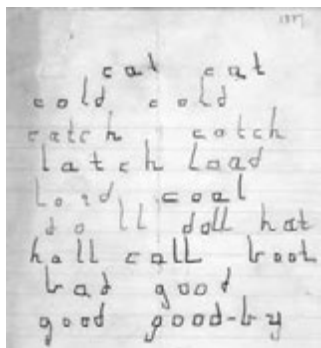 1887
cat cat
cold cold
catch catch
latch load
lord coal
doll doll hat
hall call boot
bad good
good good-by